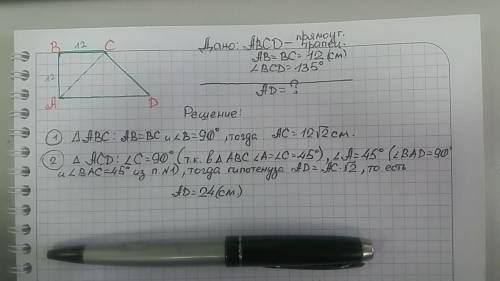 B 12 C
12
A D
Дано: ABCD – прямоуг. трапец.
AB = BC = 12 (см)
∠BCD = 135°
AD = ?
Решение:
① △ ABC: AB = BC и ∠B = 90°, тогда AC = 12√2 см.
② △ ACD: ∠C = 90° (т.к. в △ ABC ∠A = ∠C = 45°), ∠A = 45° (∠BAD = 90°
и ∠BAC = 45° из п.№1), тогда гипотенуза AD = AC·√2, то есть
AD = 24 (см)